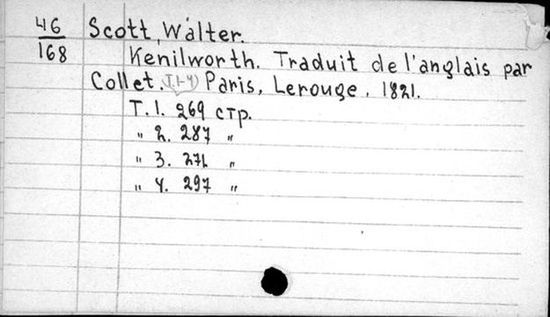 46 Scott, Walter.
168 Kenilworth. Traduit de l'anglais par
Collet. (T.1-4) Paris, Lerouge, 1821.
T. 1. 269 стр.
" 2. 287 "
" 3. 271 "
" 4. 297 "